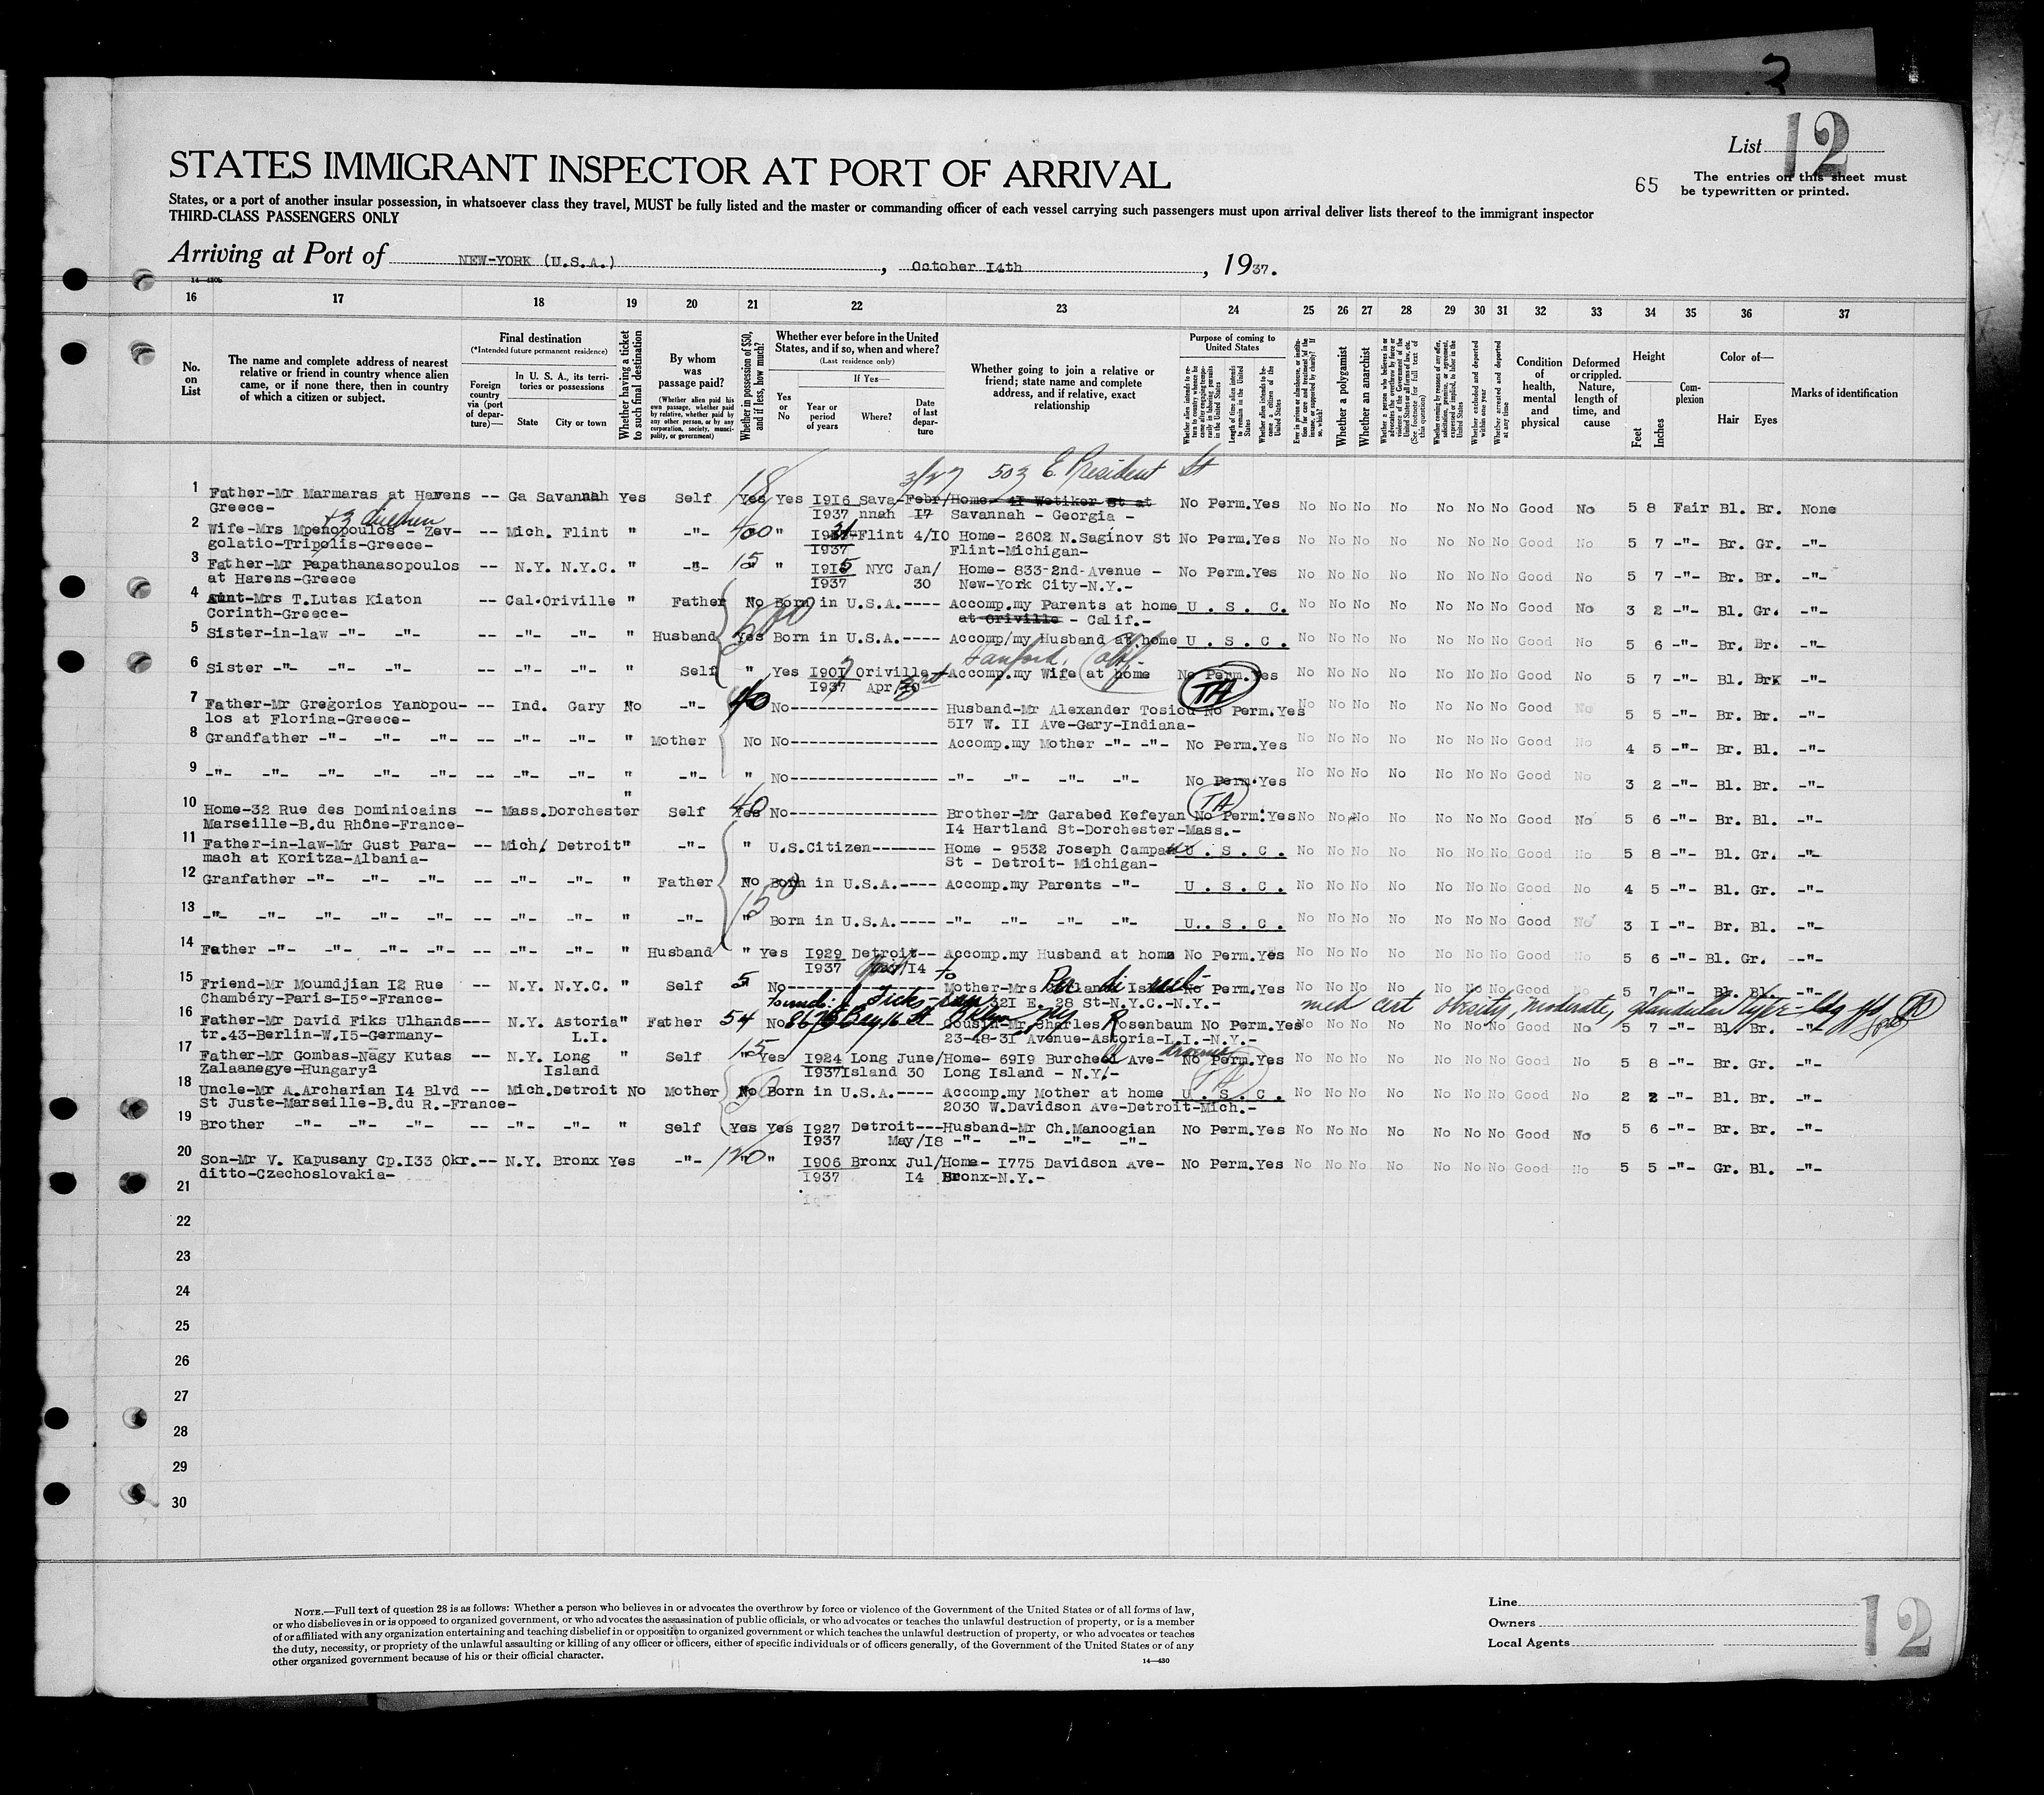 2
List 12
STATES IMMIGRANT INSPECTOR AT PORT OF ARRIVAL
65
The entries on this sheet must
be typewritten or printed.
States, or a port of another insular possession, in whatsoever class they travel, MUST be fully listed and the master or commanding officer of each vessel carrying such passengers must upon arrival deliver lists thereof to the immigrant inspector
THIRD-CLASS PASSENGERS ONLY
Arriving at Port of NEW-YORK (U.S.A.), October 14th, 1937.
16 17 18 19 20 21 22 23 24 25 26 27 28 29 30 31 32 33 34 35 36 37
No. on List
The name and complete address of nearest relative or friend in country whence alien came, or if none there, then in country of which a citizen or subject.
Final destination
(*Intended future permanent residence)
Foreign country via (port of departure)—
In U. S. A., its territories or possessions
State City or town
Whether having a ticket to such final destination
By whom was passage paid?
(Whether alien paid his own passage, whether paid by relative, whether paid by any other person, or by any corporation, society, municipality, or government)
Whether in possession of $50, and if less, how much?
Whether ever before in the United States, and if so, when and where?
(Last residence only)
Yes or No
If Yes—
Year or period of years
Where?
Date of last departure
Whether going to join a relative or friend; state name and complete address, and if relative, exact relationship
Purpose of coming to United States
Whether alien intends to return to country whence he came after engaging temporarily in laboring pursuits in the United States
Length of time alien intends to remain in the United States
Whether alien intends to become a citizen of the United States
Whether a polygamist
Whether an anarchist
Whether excluded and deported within one year
Whether arrested and deported at any time
Condition of health, mental and physical
Deformed or crippled. Nature, length of time, and cause
Height
Feet Inches
Complexion
Color of—
Hair Eyes
Marks of identification
18 3/27 503 E. President St
1 Father-Mr Marmaras at Havens -- Ga Savannah Yes Self Yes Yes 1916 Sava- Febr/ Home- 41 Wetiker St at No Perm.Yes No No No No No No No Good No 5 8 Fair Bl. Br. None
Greece- 1937 nnah 17 Savannah - Georgia -
+3 children
2 Wife-Mrs Mpenopoulos - Zev- -- Mich. Flint " -"- 400 " Flint 4/10 Home- 2602 N.Saginov St No Perm.Yes No No No No No No No Good No 5 7 -"- Br. Gr. -"-
golatio-Tripolis-Greece- 1937 Flint-Michigan-
3 Father-Mr Papathanasopoulos -- N.Y. N.Y.C. " -"- 15 " 1915 NYC Jan/ Home- 833-2nd-Avenue - No Perm.Yes No No No No No No No Good No 5 7 -"- Br. Br. -"-
at Harens-Greece 1937 30 New-York City-N.Y.-
4 Aunt-Mrs T.Lutas Kiaton -- Cal.Oriville " Father No Born in U.S.A.---- Accomp.my Parents at home U.S.C. No No No No No No No Good No 3 2 -"- Bl. Gr. -"-
Corinth-Greece- at Oriville - Calif.-
500
5 Sister-in-law -"- -"- -- -"- -"- " Husband Yes Born in U.S.A.---- Accomp/my Husband at home U.S.C. No No No No No No No Good No 5 6 -"- Br. Br. -"-
6 Sister -"- -"- -"- -- -"- -"- " Self " Yes 1907 Oriville Accomp.my Wife at home No Perm.Yes No No No No No No No Good No 5 7 -"- Bl. Br -"-
1937 Apr/
TA
7 Father-Mr Gregorios Yanopou- -- Ind. Gary No -"- 40 No---------------- Husband-Mr Alexander Tosiou No Perm.Yes No No No No No No No Good No 5 5 -"- Br. Br. -"-
los at Florina-Greece- 517 W. 11 Ave-Gary-Indiana-
8 Grandfather -"- -"- -"- -"- -- -"- -"- " Mother No No---------------- Accomp.my Mother -"- -"- No Perm.Yes No No No No No No No Good No 4 5 -"- Br. Bl. -"-
9 -"- -"- -"- -"- -"- -- -"- -"- " -"- " No---------------- -"- -"- -"- -"- No Perm.Yes No No No No No No No Good No 3 2 -"- Bl. Br. -"-
TA
10 Home-32 Rue des Dominicains -- Mass.Dorchester " Self 40 Yes No---------------- Brother-Mr Garabed Kefeyan No Perm.Yes No No No No No No No Good No 5 6 -"- Br. Bl. -"-
Marseille-B.du Rhône-France- 14 Hartland St-Dorchester-Mass.-
11 Father-in-law-Mr Gust Para- -- Mich. Detroit " -"- " U.S.Citizen------- Home - 9532 Joseph Campau U.S.C. No No No No No No No Good No 5 8 -"- Bl. Gr. -"-
mach at Koritza-Albania- St - Detroit- Michigan-
12 Granfather -"- -"- -"- -"- -- -"- -"- " Father No Born in U.S.A.---- Accomp.my Parents -"- U.S.C. No No No No No No No Good No 4 5 -"- Bl. Gr. -"-
150
13 -"- -"- -"- -"- -"- -- -"- -"- " -"- " Born in U.S.A.---- -"- -"- -"- -"- U.S.C. No No No No No No No Good No 3 1 -"- Br. Bl. -"-
14 Father -"- -"- -"- -"- -- -"- -"- " Husband " Yes 1929 Detroit-- Accomp.my Husband at home No Perm.Yes No No No No No No No Good No 5 6 -"- Bl. Gr. --"-
1937 /14
15 Friend-Mr Moumdjian 12 Rue -- N.Y. N.Y.C. " Self 5 No Mother-Mrs No Perm.Yes No No No No No No No Good No 5 7 -"- Bl. Bl. -"-
Chambéry-Paris-15°-France- 321 E. 28 St-N.Y.C.-N.Y.-
med cert obesity, moderate, glandular type
16 Father-Mr David Fiks Ulhands--- N.Y. Astoria " Father 54 No Cousin-Mr Charles Rosenbaum No Perm.Yes No No No No No No No Good No 5 7 -"- Bl. Br. -"-
tr.43-Berlin-W.15-Germany- L.I. 23-48-31 Avenue-Astoria-L.I.-N.Y.-
17 Father-Mr Gombas-Nagy Kutas -- N.Y. Long " Self 15 Yes 1924 Long June/ Home- 6919 Burchell Ave- No Perm.Yes No No No No No No No Good No 5 8 -"- Br. Gr. -"-
Zalaanegye-Hungary Island 1937 Island 30 Long Island - N.Y.-
18 Uncle-Mr A.Archarian 14 Blvd -- Mich.Detroit No Mother No Born in U.S.A.---- Accomp.my Mother at home U.S.C. No No No No No No No Good No 2 2 -"- Bl. Br. -"-
St Juste-Marseille-B.du R.-France- 2030 W.Davidson Ave-Detroit-Mich.-
19 Brother -"- -"- -"- -- -"- -"- " Self Yes Yes 1927 Detroit---Husband-Mr Ch.Manoogian No Perm.Yes No No No No No No No Good No 5 6 -"- Br. Br. -"-
1937 May/18 -"- -"- -"- -"-
20 Son-Mr V. Kapusany Cp.133 Okr.-- N.Y. Bronx Yes -"- 120 " 1906 Bronx Jul/ Home- 1775 Davidson Ave- No Perm.Yes No No No No No No No Good No 5 5 -"- Gr. Bl. -"-
ditto-Czechoslovakia- 1937 14 Bronx-N.Y.-
21
22
23
24
25
26
27
28
29
30
NOTE.—Full text of question 28 is as follows: Whether a person who believes in or advocates the overthrow by force or violence of the Government of the United States or of all forms of law,
or who disbelieves in or is opposed to organized government, or who advocates the assassination of public officials, or who advocates or teaches the unlawful destruction of property, or is a member
of or affiliated with any organization entertaining and teaching disbelief in or opposition to organized government or which teaches the unlawful destruction of property, or who advocates or teaches
the duty, necessity, or propriety of the unlawful assaulting or killing of any officer or officers, either of specific individuals or of officers generally, of the Government of the United States or of any
other organized government because of his or their official character.
14—430
Line
Owners
Local Agents
12